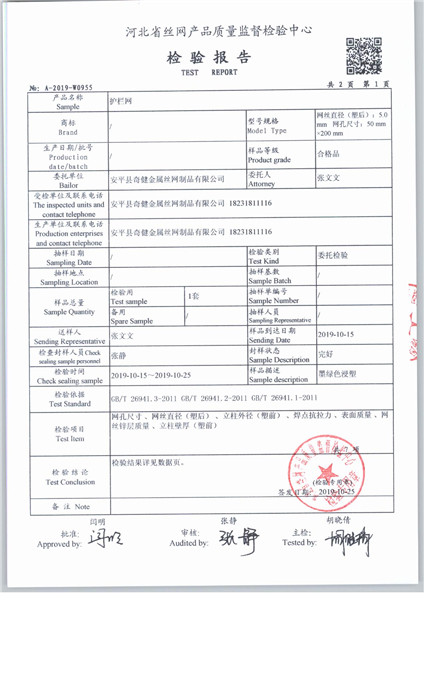 河北省丝网产品质量监督检验中心
检 验 报 告
TEST REPORT
№: A-2019-W0955 共 2 页 第 1 页
产品名称 Sample 护栏网
商标 Brand / 型号规格 Model Type 网丝直径（塑后）：5.0 mm 网孔尺寸：50 mm ×200 mm
生产日期/批号 Production date/batch / 样品等级 Product grade 合格品
委托单位 Bailor 安平县奇健金属丝网制品有限公司 委托人 Attorney 张文文
受检单位及联系电话 The inspected units and contact telephone 安平县奇健金属丝网制品有限公司 18231811116
生产单位及联系电话 Production enterprises and contact telephone 安平县奇健金属丝网制品有限公司 18231811116
抽样日期 Sampling Date / 检验类别 Test Kind 委托检验
抽样地点 Sampling Location / 抽样基数 Sample Batch /
样品总量 Sample Quantity 检验用 Test sample 1套 抽样单编号 Sample Number /
备用 Spare Sample / 抽样人员 Sampling Representative /
送样人 Sending Representative 张文文 样品到达日期 Sending Date 2019-10-15
检查封样人员 Check sealing sample personnel 张静 封样状态 Sample Description 完好
检验时间 Check sealing sample 2019-10-15～2019-10-25 样品描述 Sample description 墨绿色浸塑
检验依据 Test Standard GB/T 26941.3-2011 GB/T 26941.2-2011 GB/T 26941.1-2011
检验项目 Test Item 网孔尺寸、网丝直径（塑后）、立柱外径（塑前）、焊点抗拉力、表面质量、网
丝锌层质量、立柱壁厚（塑前）
共 7 项
检 验 结 论 Test Conclusion 检验结果详见数据页。
(检验专用章)
签发日期: 2019-10-25
备 注 Note
闫明 张静 胡晓倩
批准: Approved by: 审核: Audited by: 主检: Tested by: